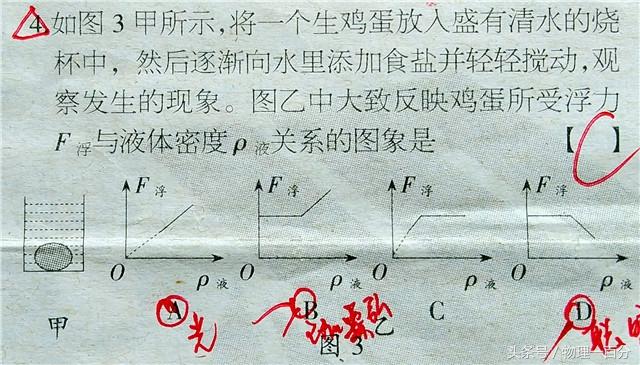 4.如图3甲所示,将一个生鸡蛋放入盛有清水的烧
杯中，然后逐渐向水里添加食盐并轻轻搅动,观
察发生的现象。图乙中大致反映鸡蛋所受浮力
F浮与液体密度ρ液关系的图象是 【 C 】
F浮 F浮 F浮 F浮
O ρ液 O ρ液 O ρ液 O ρ液
甲 A B 乙 C D
图 3
头条号 / 物理一百分